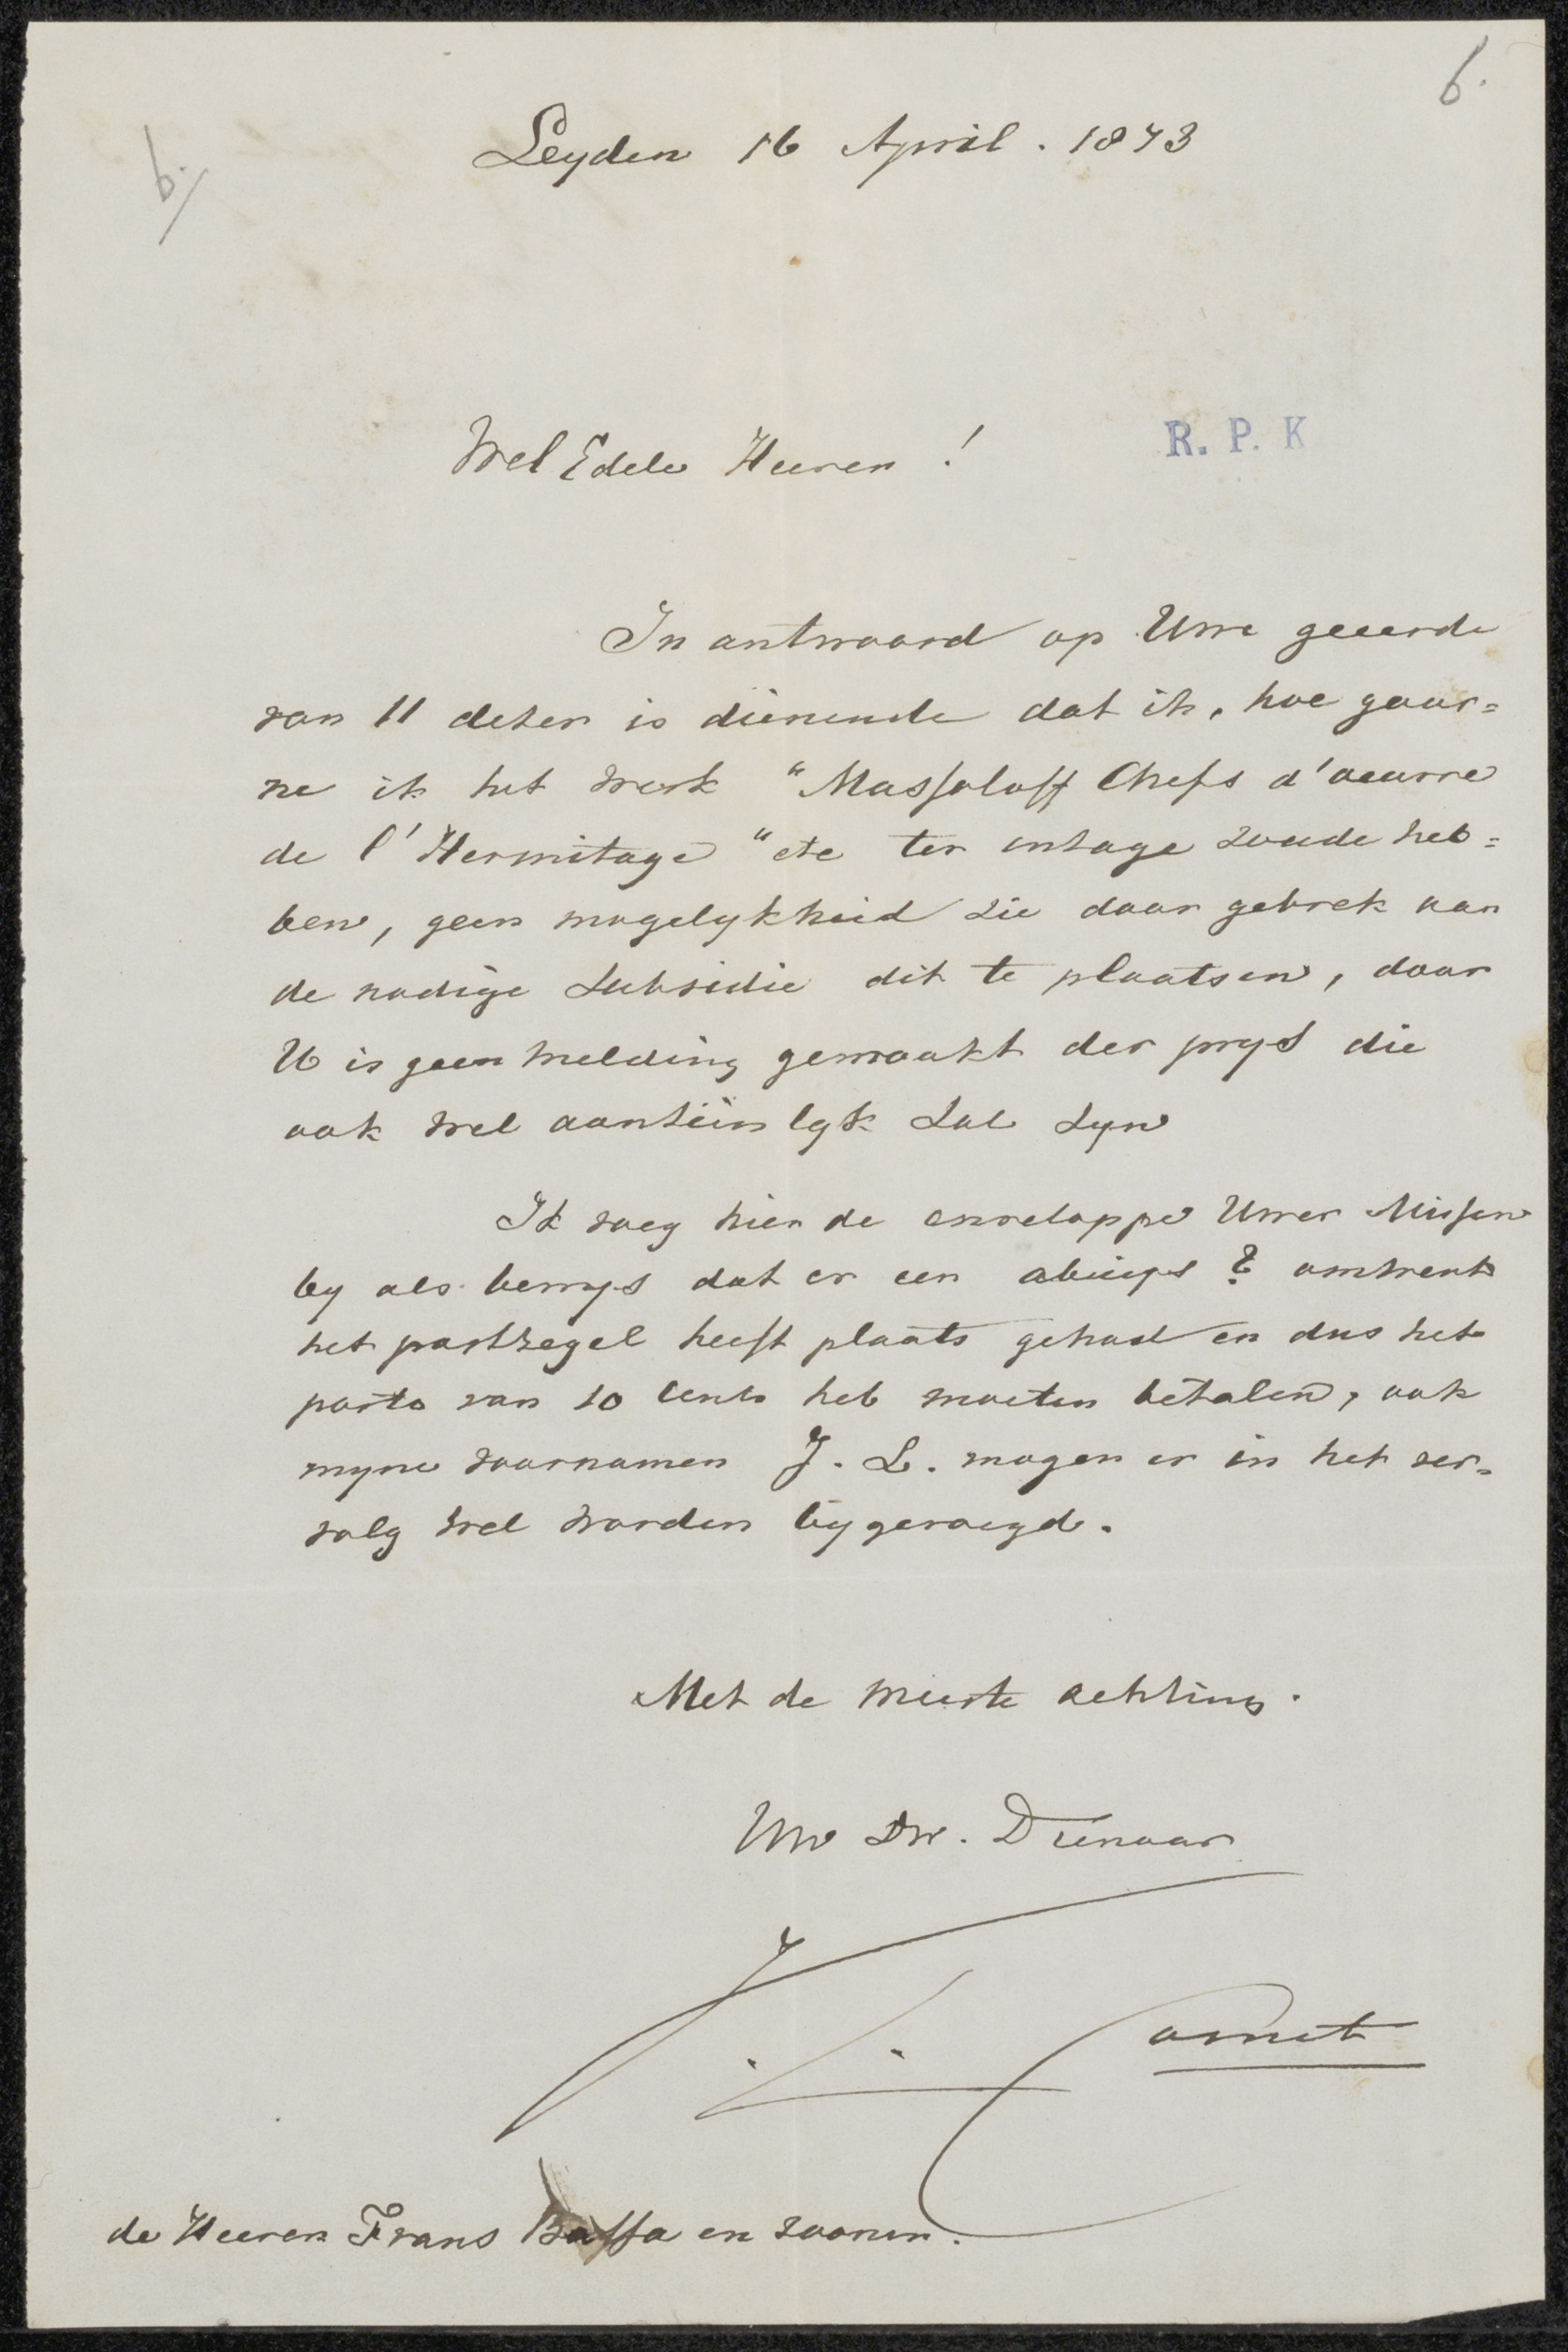 6.
6./
Leyden 16 April. 1873
Wel Edele Heeren !
R. P. K
In antwoord op Uwe geeerde
van 11 dezer is dienende dat ik, hoe gaar=
ne ik het werk "Massaloff Chefs d'oeuvre
de l'Hermitage" etc ter inzage zoude heb=
ben, geen mogelykheid zie door gebrek aan
de nodige Subsidie dit te plaatsen, door
U is geen melding gemaakt der prys die
ook wel aanzienlyk zal zyn
Ik voeg hier de enveloppe Uwer Missive
by als bewys dat er een abuys ? omtrent
het postzegel heeft plaats gehad en dus het
porto van 10 Cents heb moeten betalen, ook
myne voornamen J. L. mogen er in het ver=
volg wel worden bygevoegd.
Met de meeste achting.
Uw Dw. Dienaar
J. L. Cornet
de Heeren Frans Buffa en zoonen.